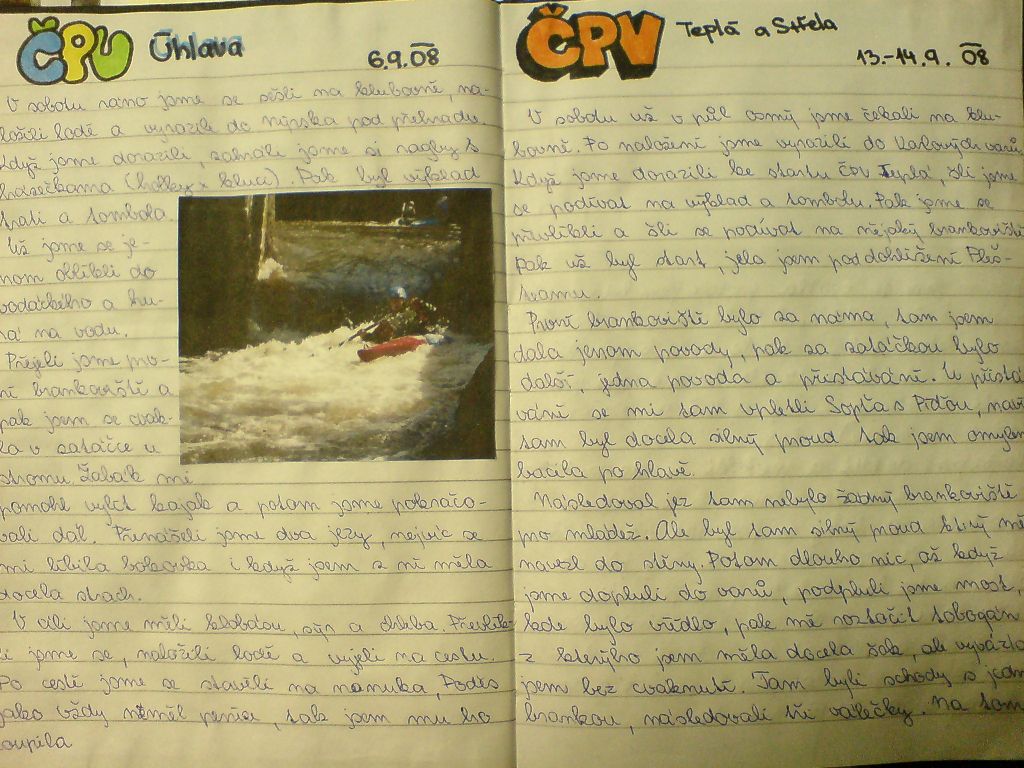 ČPV Úhlava 6.9.08
V sobotu ráno jsme se sešli na klubovně, na-
ložili lodě a vyrazili do Nýrska pod přehradu.
Když jsme dorazili, zahráli jsme si ragby s
holky x kluci). Pak byl výklad
trati a tombola.
Už jsme se je-
nom oblíkli do
vodáckého a hu-
rá na vodu.
Přejeli jsme prv-
ní brankoviště a
pak jsem se cvak-
la v zatáčce u
stromu. Žabák mi
pomohl vylít kajak a potom jsme pokračo-
vali dál. Přenášeli jsme dva jezy, nejvíc se
mi líbila bobovka i když jsem z ní měla
docela strach.
V cíli jsme měli klobásu, sýr a chleba. Převlík-
li jsme se, naložili lodě a vyjeli na cestu.
Po cestě jsme se stavili na nanuka,
jako vždy neměl peníze, tak jsem mu ho
koupila
ČPV Teplá a Střela
13.-14.9.08
V sobotu už v půl osmý jsme čekali na klu-
bovně. Po naložení jsme vyrazili do Karlových varů.
Když jsme dorazili ke startu ČPV Teplá, šli jsme
se podívat na výklad a tombolu. Pak jsme se
převlíkli a šli se podívat na nějaký brankoviště.
Pak už byl start, jela jsem pod dohlížení
První brankoviště bylo za náma, tam jsem
dala jenom povody, pak za zatáčkou bylo
další, jedna povoda a přistávání. U přistá-
vání se mi tam vpletli Sopťa s Píďou, navíc
tam byl docela silný proud tak jsem omylem
bacila po hlavě.
Následoval jez tam nebylo žádný brankoviště
pro mládež. Ale byl tam silný proud který mě
navezl do stěny. Potom dlouho nic, až když
jsme dopluli do varů, podpluli jsme most,
kde bylo vřídlo, pak mě roztáčil tobogán
z kterýho jsem měla docela šok, ale vyvázla
jsem bez cvaknutí. Tam byli schody s jednou
brankou, následovali tři válečky. Na tom